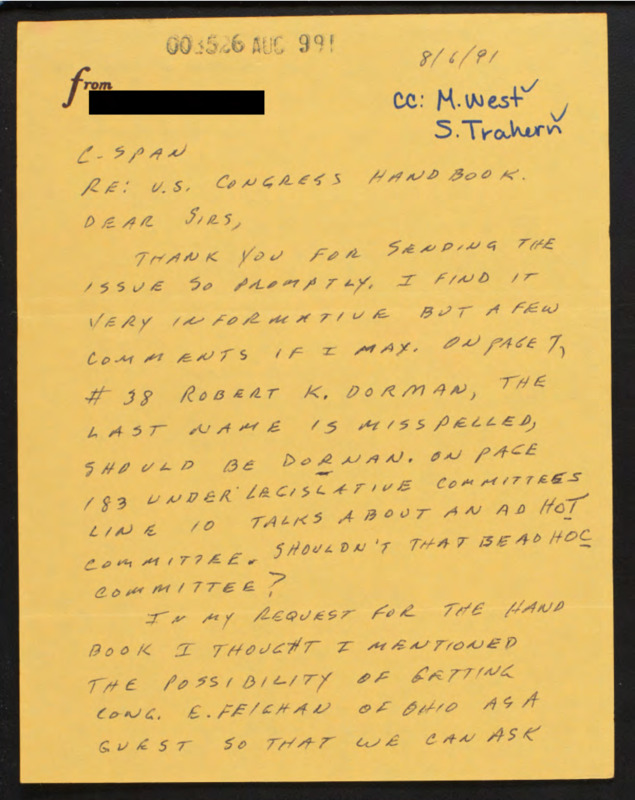 003526 AUC 991
8/6/91
from
CC: M. West
S. Trahern
C-SPAN
RE: U.S. CONGRESS HANDBOOK.
DEAR SIRS,
THANK YOU FOR SENDING THE
ISSUE SO PROMPTLY. I FIND IT
VERY INFORMATIVE BUT A FEW
COMMENTS IF I MAY. ON PAGE 7,
# 38 ROBERT K. DORMAN, THE
LAST NAME IS MISSPELLED,
SHOULD BE DORNAN. ON PAGE
183 UNDER LEGISLATIVE COMMITTEES
LINE 10 TALKS ABOUT AN AD HOT
COMMITTEE. SHOULDN'T THAT BE AD HOC
COMMITTEE?
IN MY REQUEST FOR THE HAND
BOOK I THOUGHT I MENTIONED
THE POSSIBILITY OF GETTING
CONG. E. FEIGHAN OF OHIO AS A
GUEST SO THAT WE CAN ASK